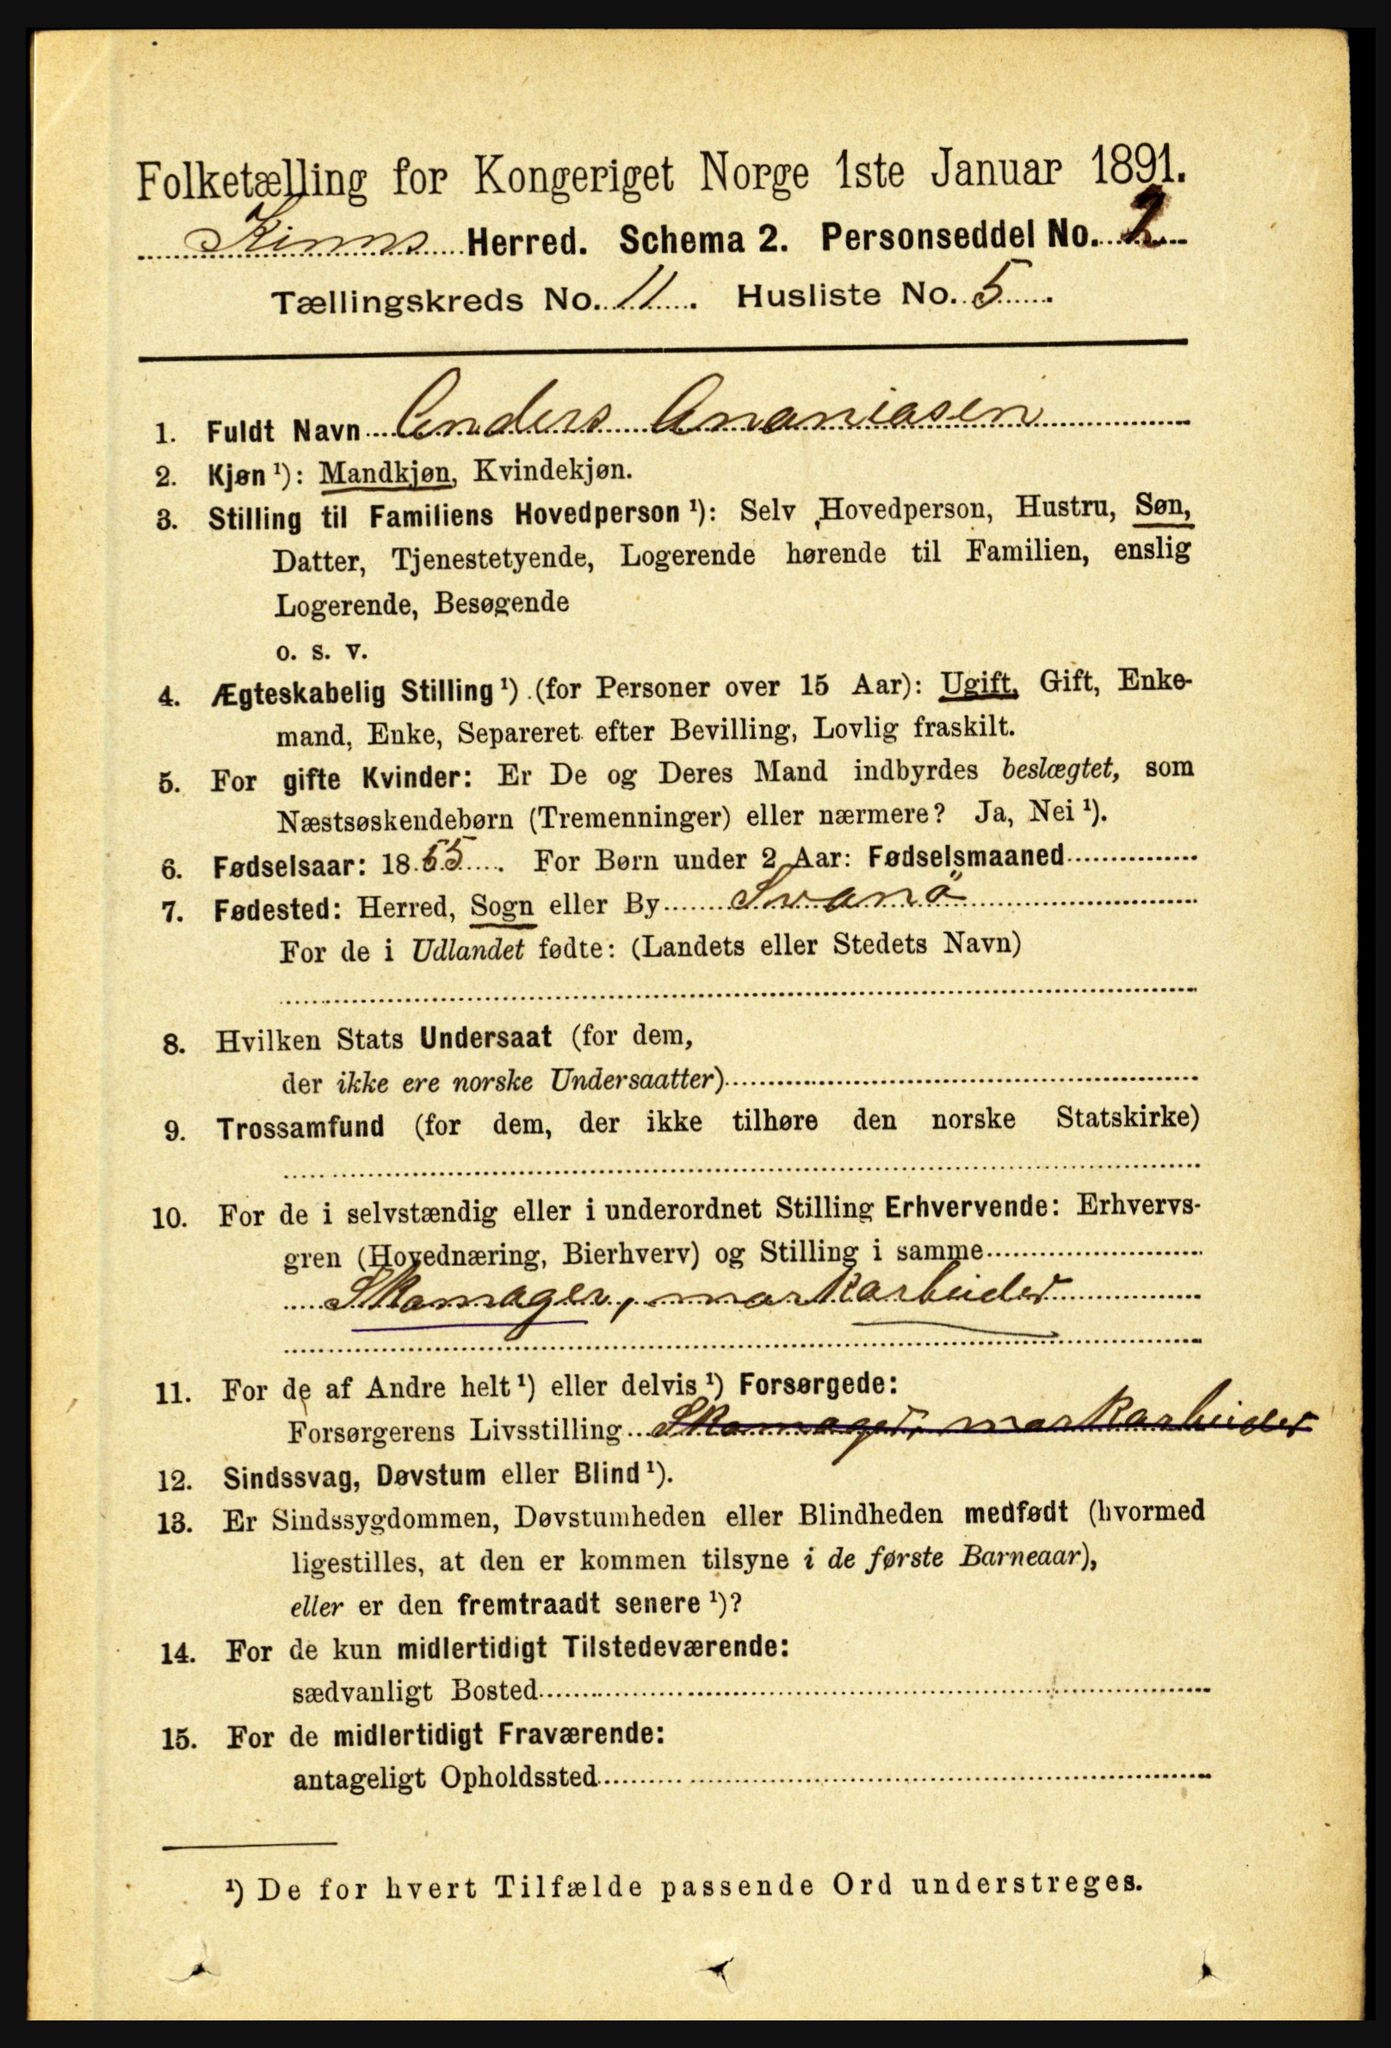 Folketælling for Kongeriget Norge 1ste Januar 1891.
Kinns Herred. Schema 2. Personseddel No. 2
Tællingskreds No. 11. Husliste No. 5.
1. Fuldt Navn Anders Ananiasen
2. Kjøn ¹): Mandkjøn, Kvindekjøn.
3. Stilling til Familiens Hovedperson ¹): Selv Hovedperson, Hustru, Søn,
Datter, Tjenestetyende, Logerende hørende til Familien, enslig
Logerende, Besøgende
o. s. v.
4. Ægteskabelig Stilling ¹) (for Personer over 15 Aar): Ugift, Gift, Enke-
mand, Enke, Separeret efter Bevilling, Lovlig fraskilt.
5. For gifte Kvinder: Er De og Deres Mand indbyrdes beslægtet, som
Næstsøskendebørn (Tremenninger) eller nærmere? Ja, Nei ¹).
6. Fødselsaar: 1865. For Børn under 2 Aar: Fødselsmaaned
7. Fødested: Herred, Sogn eller By Svanö
For de i Udlandet fødte: (Landets eller Stedets Navn)
8. Hvilken Stats Undersaat (for dem,
der ikke ere norske Undersaatter)
9. Trossamfund (for dem, der ikke tilhøre den norske Statskirke)
10. For de i selvstændig eller i underordnet Stilling Erhvervende: Erhvervs-
gren (Hovednæring, Bierhverv) og Stilling i samme
Skomager, markarbeider
11. For de af Andre helt ¹) eller delvis ¹) Forsørgede:
Forsørgerens Livsstilling Skomager, markarbeider
12. Sindssvag, Døvstum eller Blind ¹).
13. Er Sindssygdommen, Døvstumheden eller Blindheden medfødt (hvormed
ligestilles, at den er kommen tilsyne i de første Barneaar),
eller er den fremtraadt senere ¹)?
14. For de kun midlertidigt Tilstedeværende:
sædvanligt Bosted
15. For de midlertidigt Fraværende:
antageligt Opholdssted
¹) De for hvert Tilfælde passende Ord understreges.